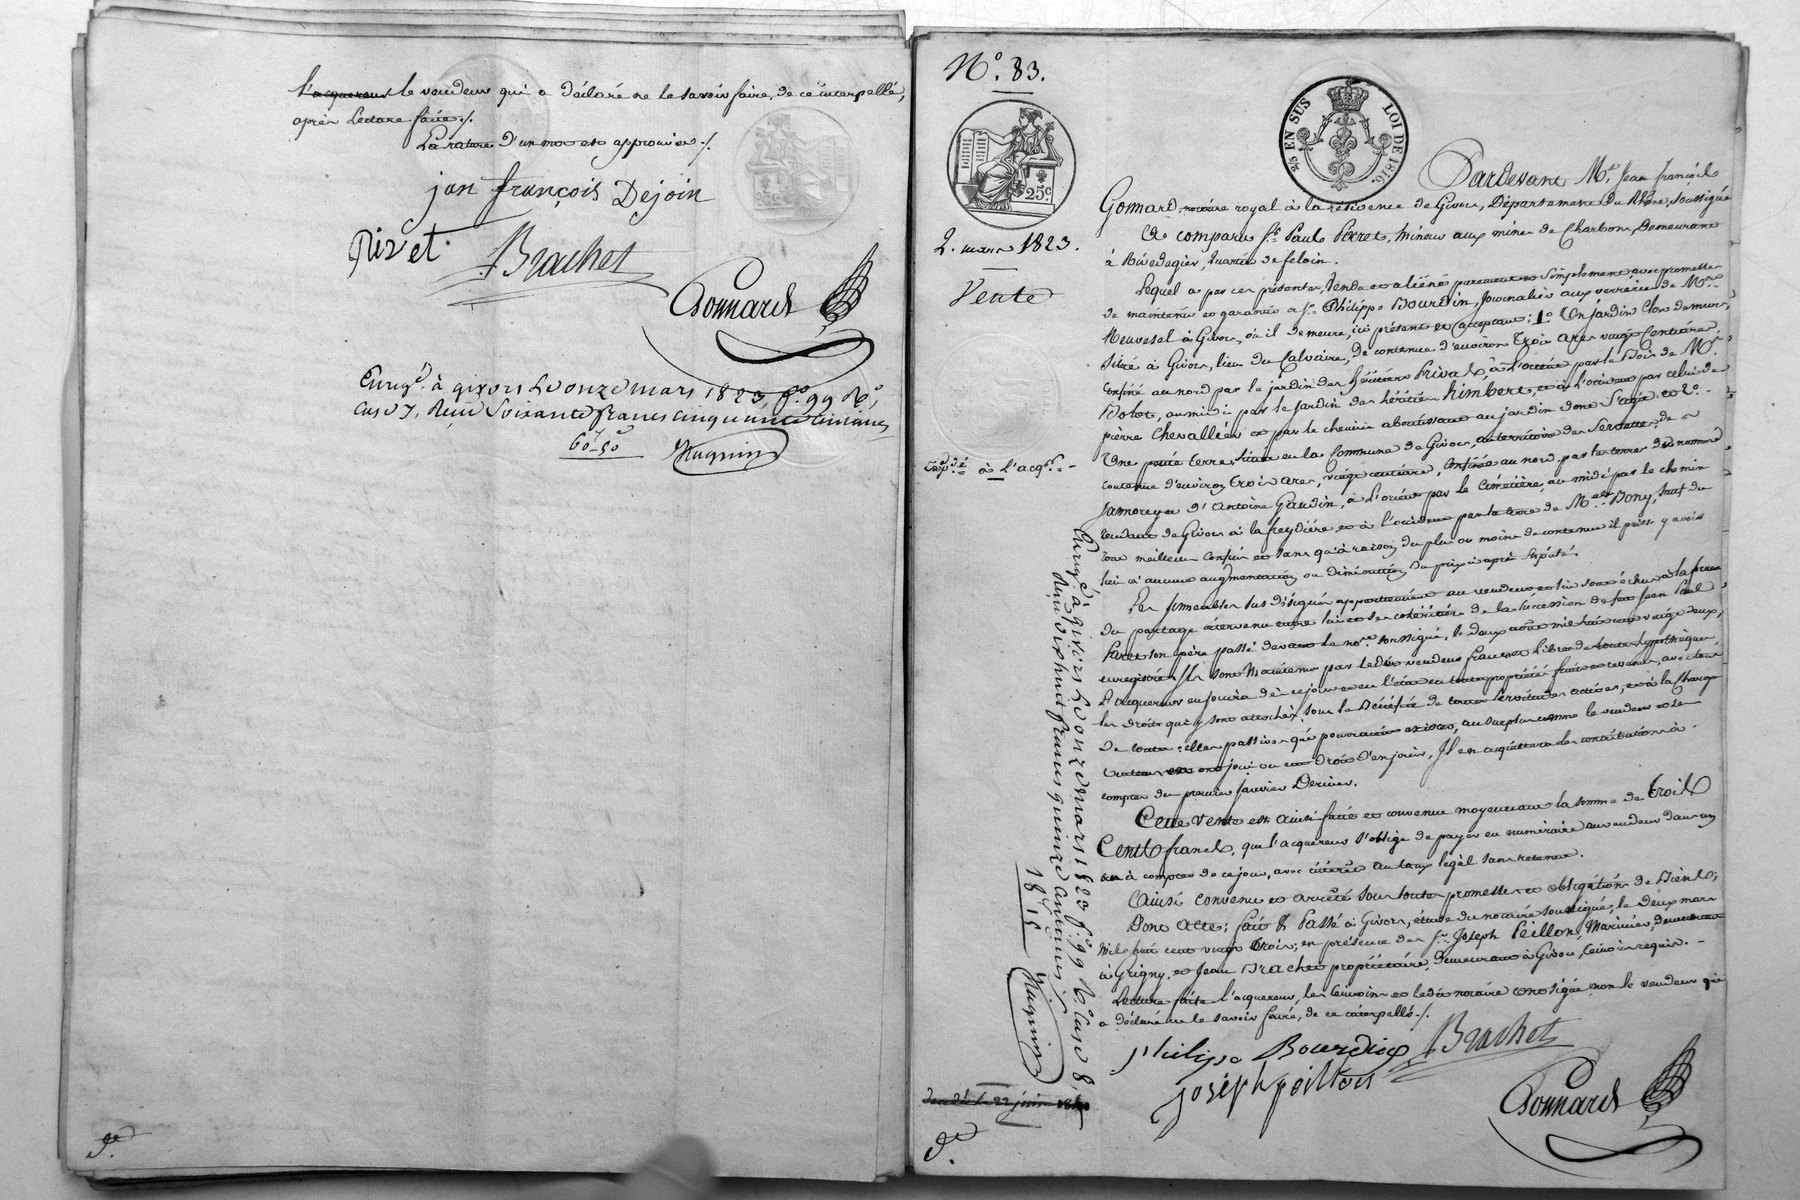 l'acquereur le vendeur qui a déclaré ne le savoir faire, de ce interpellé,
après Lecture faite ./.
La rature d'un mot est approuvée ./.
jan françois Dejoin
Rivet
Brachet
Gonnard
Enregé. à givors le onze mars 1823, fo. 99 Ro,
case 7, Reçu Soixante francs cinquante centimes
60f 50c
Magnin
de.
No. 83.
2 ½ EN SUS LOI DE 1816.
25c
2. mars 1823.
Vente
Expdé à L'acqr. -
Pardevant Me. Jean françois
Gonnard, notaire royal à la résidence de Givors, Département du Rhône, soussigné
A comparu Sr. Paul Paret, mineur aux mines de Charbon, Demeurant
à Rivedegier, quartier de feloin.
Lequel a par ces présentes, Vendu et aliéné purement et Simplement, avec promesse
de maintenir et garantir à Sr. Philippe Bourdin, Journalier aux verreries de Mrs.
Neuvesel à Givors, où il demeure, ici présent et acceptant; 1o. Un jardin Clos de murs,
Situé à Givors, lieu du Calvaire, de contenue d'environ Trois ares vingt Centiares
confiné au nord par le jardin des héritiers Prival, à L'orient par le Bois de Mr.
Bolot, au midi par le jardin des héritiers himbert, et à L'occident par celui de
pierre Chevallier et par le chemin aboutissant au jardin dont S'agit et 2o. -
Une petite terre, Située en la Commune de Givors, au territoire des Servettes, de
contenue d'environ Trois ares, vingt centiares, Confinée au nord par les terres des nommés
Jamoreyer et Antoine Gaudin, à L'orient par le Cimetière, au midi par le chemin
tendant de Givors à la freydière, et à l'occident par la terre de Mr. Bony, sauf de
tous meilleurs Confins et sans qu'à raison du plus ou moins de contenue il puisse y avoir
lieu à aucune augmentation ou diminution du prix ci après Stipulé.
Les Immeubles sus désignés appartiennent au vendeur et lui sont échus à la forme
du partage intervenu entre lui et ses cohéritiers de la Succession de feu Jean Paul
Paret son père passé devant le nore. soussigné, le deux août mil huit cent vingt deux,
enregistré. Ils sont Maintenus par ledit vendeur francs et Libres de toutes hypothèques,
L'acquereur en jouira dès ce jour et en l'état en toute propriété fruits et revenus, avec tous
les droits qui y sont attachés, sous le Bénéfice de toutes Servitudes actives, et à la Charge
de toutes celles passives qui pourraient exister, au surplus comme le vendeur et ses
auteurs en ont joui ou eu Droit d'en jouir, Il en acquittera les contributions à
compter du premier Janvier Dernier.
Cette vente est ainsi faite et convenue moyennant la somme de Trois
Cents francs, que l'acquereur s'oblige de payer en numéraire au vendeur dans un
an à compter de ce jour, avec intérêts au taux légal sans retenue.
Ainsi convenu et arrêté sous toutes promesses et obligations de Biens;
Dont Acte; fait & Passé à Givors, étude du notaire soussigné, le deux mars
mil huit cent vingt Trois; en présence des Srs. Joseph Peillon, Marinier, demeurant
à Grigny, et Jean Brachet propriétaire, demeurant à Givors, témoins requis. -
Lecture faite l'acquereur, les témoins et ledit notaire ont signé non le vendeur qui
a déclaré ne le savoir faire, de ce interpellé ./.
Philippe Bourdin
Brachet
joseph peillon
Gonnard
Enregé. à givors le onze mars 1823 fo. 99 Ro. case 8,
Reçu dix huit francs quinze centimes
18f 15c
Magnin
de.